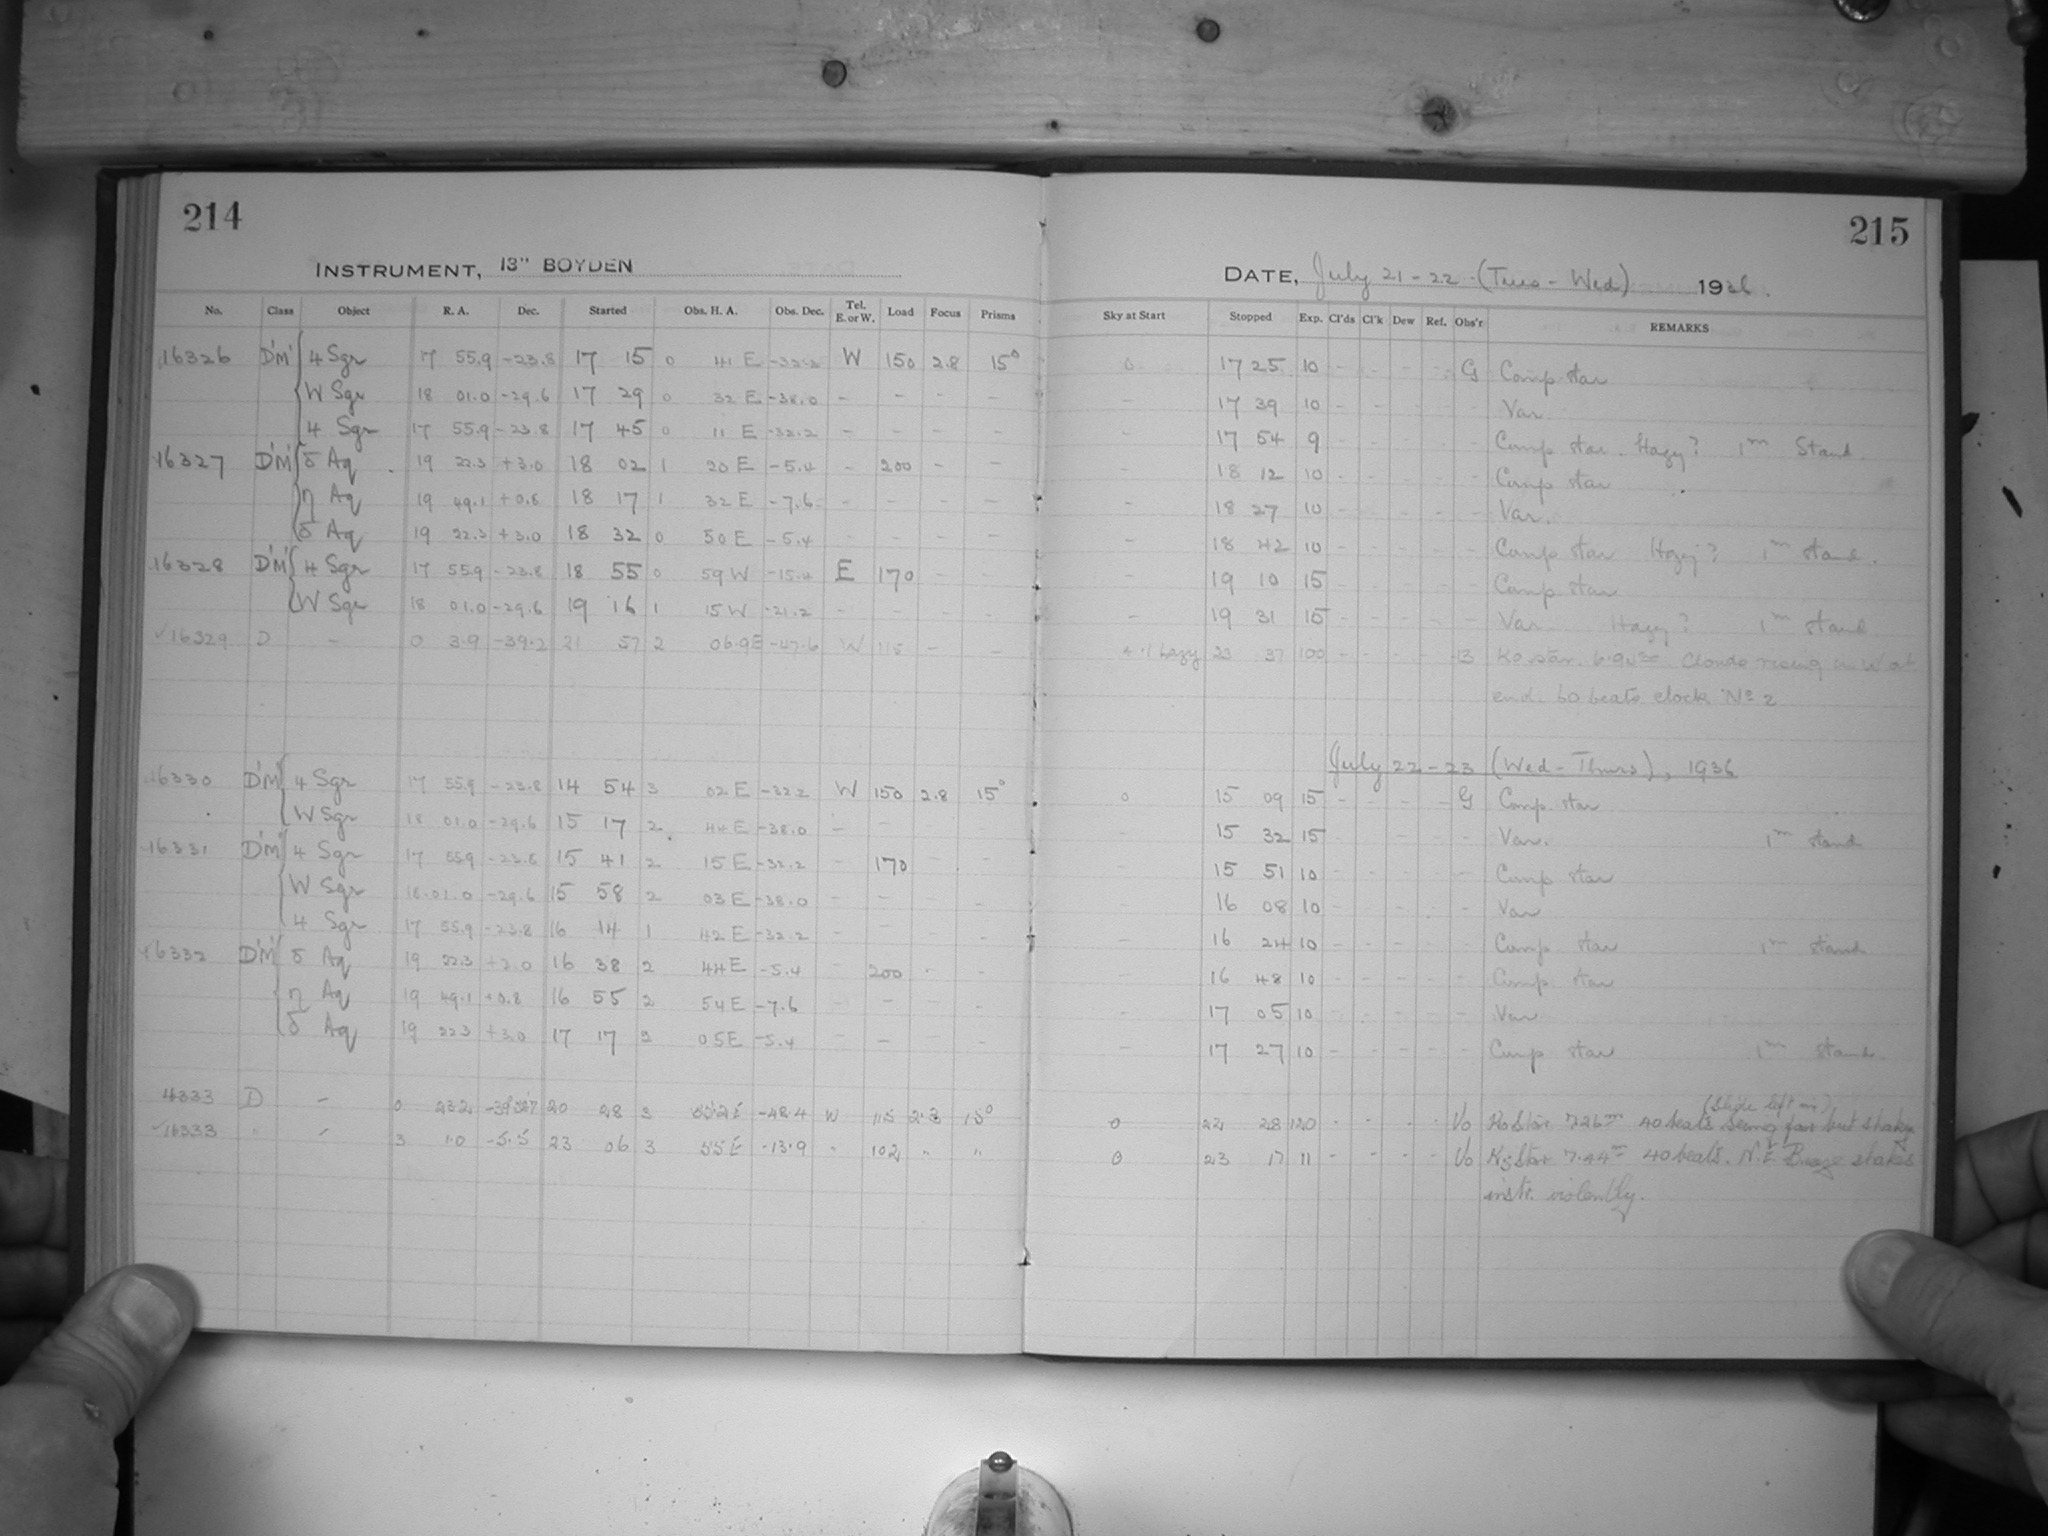 214
215
INSTRUMENT, 13" BOYDEN
DATE, July 21-22 (Tues - Wed) 1936.
No. Class Object R. A. Dec. Started Obs. H. A. Obs. Dec. Tel. E. or W. Load Focus Prisms Sky at Start Stopped Exp. Cl'ds Cl'k Dew Ref. Obs'r REMARKS
16326 D'M' 4 Sgr 17 55.9 -23.8 17 15 0 41 E -32.2 W 150 2.8 15° 0 17 25 10 - - - - G Comp star
W Sgr 18 01.0 -29.6 17 29 0 32 E -38.0 - - - - - 17 39 10 - - - - - Var
4 Sgr 17 55.9 -23.8 17 45 0 11 E -32.2 - - - - - 17 54 9 - - - - - Comp star. Hazy? 1m Stand.
16327 D'M' δ Aq 19 22.3 +3.0 18 02 1 20 E -5.4 - 200 - - - 18 12 10 - - - - - Comp star
η Aq 19 49.1 +0.8 18 17 1 32 E -7.6 - - - - - 18 27 10 - - - - - Var.
δ Aq 19 22.3 +3.0 18 32 0 50 E -5.4 - - - - - 18 42 10 - - - - - Comp star Hazy? 1m stand.
16328 D'M' 4 Sgr 17 55.9 -23.8 18 55 0 59 W -15.4 E 170 - - - 19 10 15 - - - - - Comp star
W Sgr 18 01.0 -29.6 19 16 1 15 W -21.2 - - - - - 19 31 15 - - - - - Var Hazy? 1m stand
✓16329 D - 0 3.9 -39.2 21 57 2 06.9E -47.6 W 115 - - hazy 23 37 100 - - - - B K0 star. Clouds rising in W at
end. 60 beats clock No 2
July 22-23 (Wed-Thurs), 1936
16330 D'M' 4 Sgr 17 55.9 -23.8 14 54 3 02 E -32.2 W 150 2.8 15° 0 15 09 15 - - - - G Comp. star
W Sgr 18 01.0 -29.6 15 17 2 44 E -38.0 - - - - - 15 32 15 - - - - - Var. 1m stand
16331 D'M' 4 Sgr 17 55.9 -23.8 15 41 2 15 E -32.2 - 170 - - - 15 51 10 - - - - - Comp star
W Sgr 18.01.0 -29.6 15 58 2 03 E -38.0 - - - - - 16 08 10 - - - - - Var
4 Sgr 17 55.9 -23.8 16 14 1 42 E -32.2 - - - - - 16 24 10 - - - - - Comp star 1m stand
16332 D'M' δ Aq 19 22.3 +3.0 16 38 2 44 E -5.4 - 200 - - - 16 48 10 - - - - - Comp. star
η Aq 19 49.1 +0.8 16 55 2 54 E -7.6 - - - - - 17 05 10 - - - - - Var
δ Aq 19 22.3 +3.0 17 17 2 05 E -5.4 - - - - - 17 27 10 - - - - - Comp star 1m stand.
D - 0 23.2 20 28 3 -48.4 W 115 2.3 15° 0 22 28 120 - - - - Vo K0 Star 7.26m 40 beats Seeing fair but shaky
(Slide left in)
✓16333 " - 3 1.0 -5.5 23 06 3 55 E -13.9 " 102 " " 0 23 17 11 - - - - Vo K5 Star 7.44m 40 beats. N.E Breeze shakes
instr. violently.